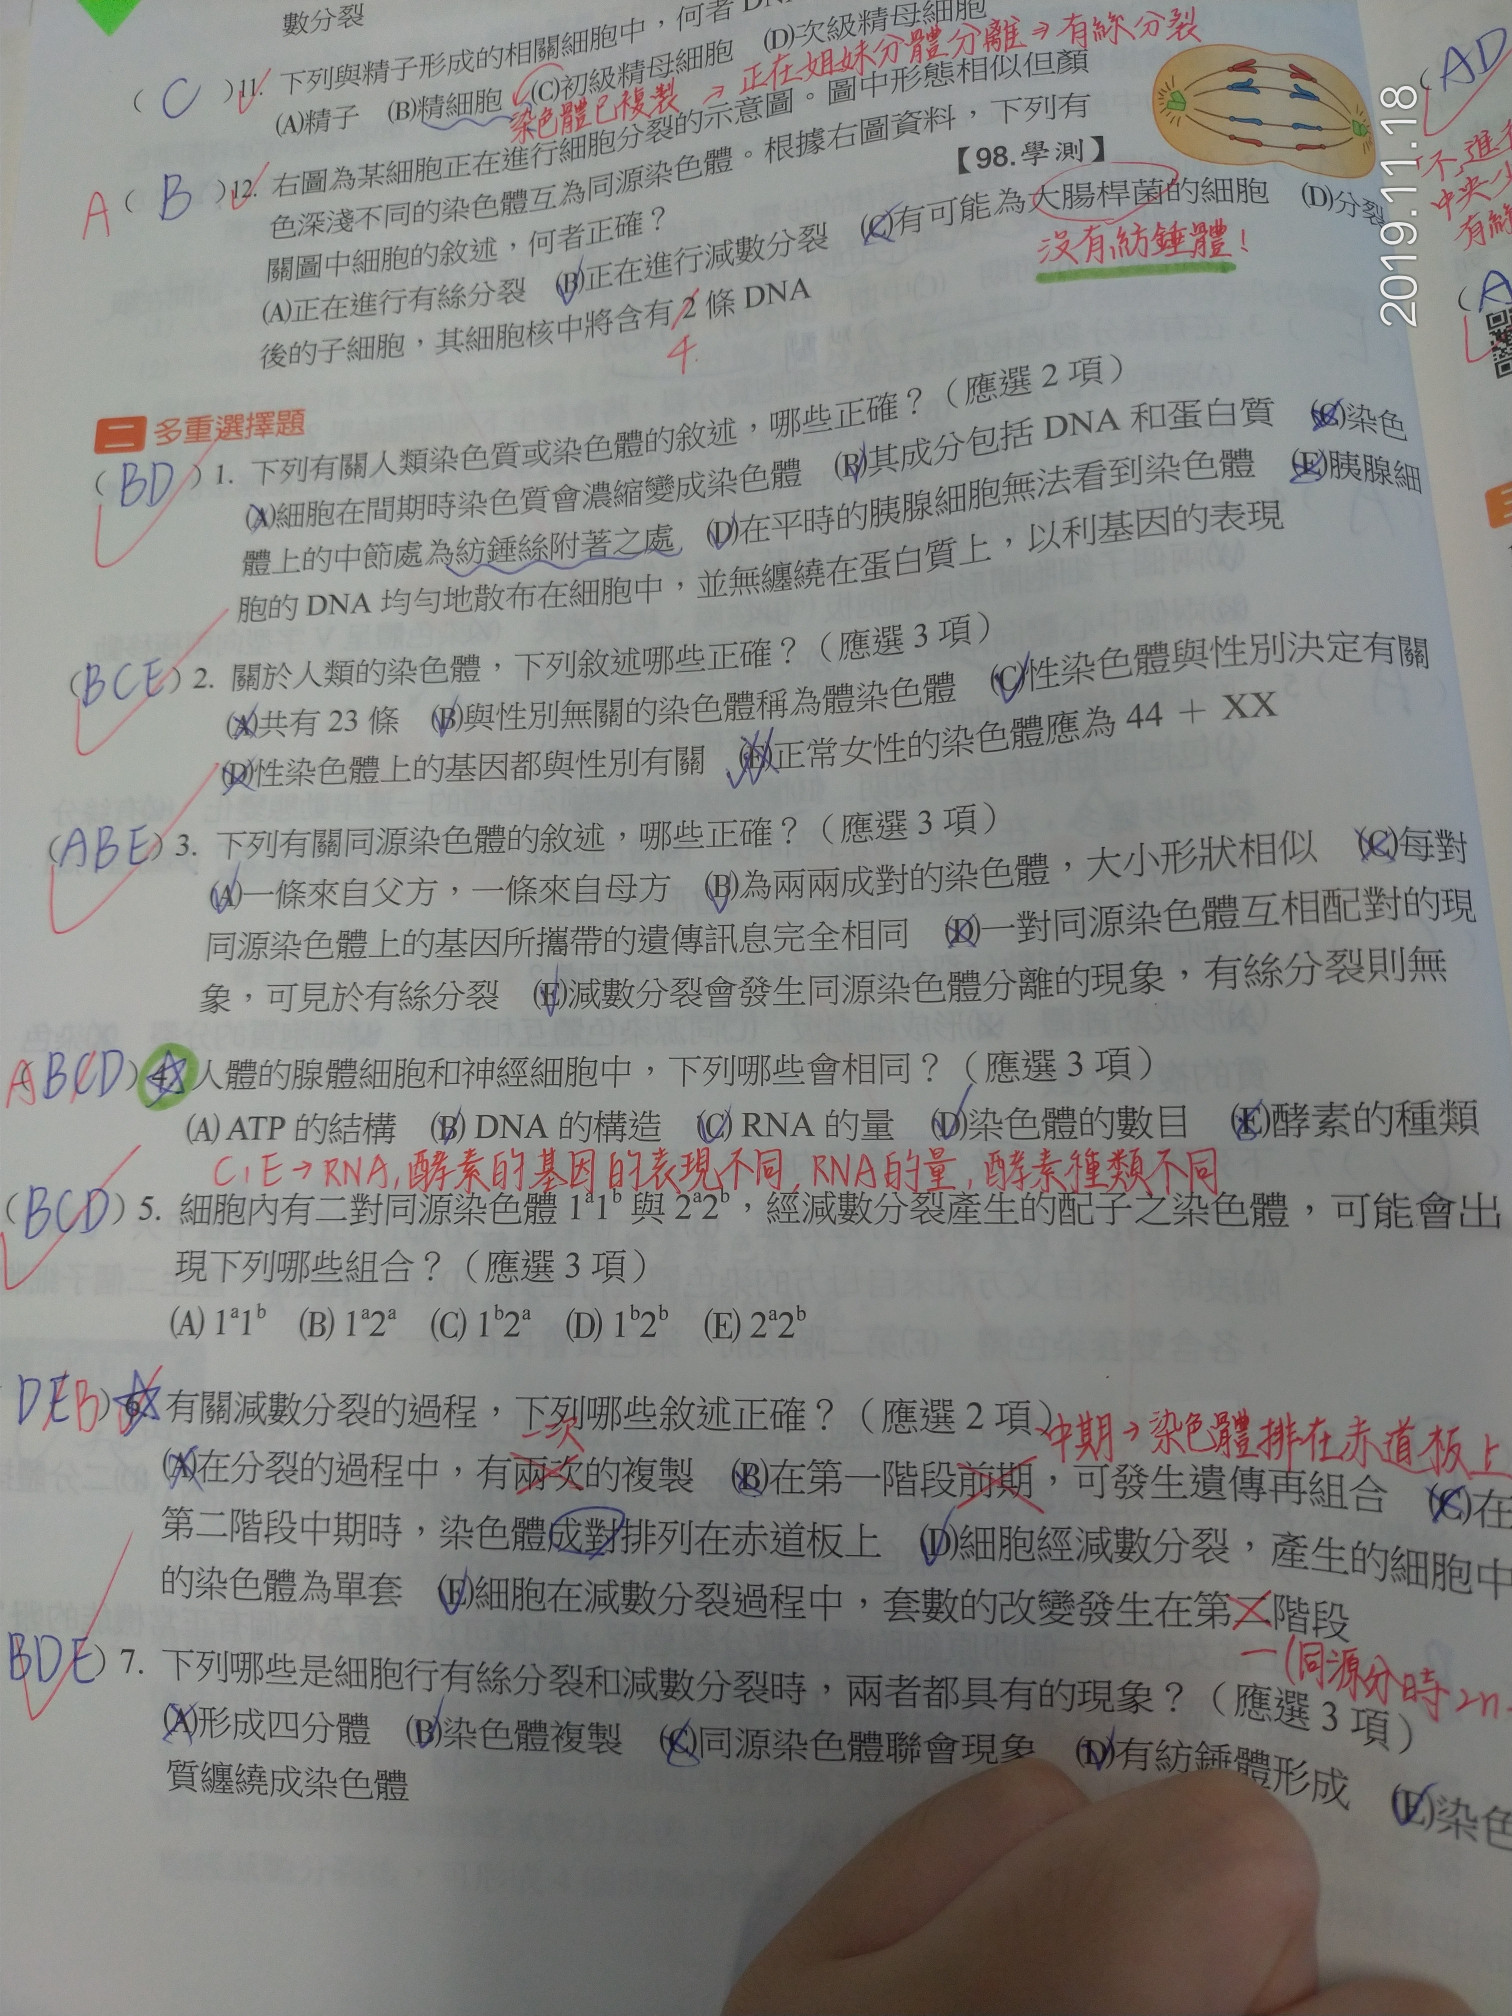 數分裂
( C ) 11. 下列與精子形成的相關細胞中，何者 DN
(A)精子 (B)精細胞 (C)初級精母細胞 (D)次級精母細胞
染色體已複製 → 正在姐妹分體分離 → 有絲分裂
A ( B ) 12. 右圖為某細胞正在進行細胞分裂的示意圖。圖中形態相似但顏
色深淺不同的染色體互為同源染色體。根據右圖資料，下列有
關圖中細胞的敘述，何者正確？ 【98.學測】
(A)正在進行有絲分裂 (B)正在進行減數分裂 (C)有可能為大腸桿菌的細胞 (D)分裂
沒有紡錘體！
後的子細胞，其細胞核中將含有 2 條 DNA
4
二 多重選擇題
( BD ) 1. 下列有關人類染色質或染色體的敘述，哪些正確？（應選 2 項）
(A)細胞在間期時染色質會濃縮變成染色體 (B)其成分包括 DNA 和蛋白質 (C)染色
體上的中節處為紡錘絲附著之處 (D)在平時的胰腺細胞無法看到染色體 (E)胰腺細
胞的 DNA 均勻地散布在細胞中，並無纏繞在蛋白質上，以利基因的表現
( BCE ) 2. 關於人類的染色體，下列敘述哪些正確？（應選 3 項）
(A)共有 23 條 (B)與性別無關的染色體稱為體染色體 (C)性染色體與性別決定有關
(D)性染色體上的基因都與性別有關 (E)正常女性的染色體應為 44 + XX
( ABE ) 3. 下列有關同源染色體的敘述，哪些正確？（應選 3 項）
(A)一條來自父方，一條來自母方 (B)為兩兩成對的染色體，大小形狀相似 (C)每對
同源染色體上的基因所攜帶的遺傳訊息完全相同 (D)一對同源染色體互相配對的現
象，可見於有絲分裂 (E)減數分裂會發生同源染色體分離的現象，有絲分裂則無
ABCD ) 4. 人體的腺體細胞和神經細胞中，下列哪些會相同？（應選 3 項）
(A) ATP 的結構 (B) DNA 的構造 (C) RNA 的量 (D)染色體的數目 (E)酵素的種類
C, E → RNA, 酵素的基因的表現不同, RNA的量, 酵素種類不同
( BCD ) 5. 細胞內有二對同源染色體 1ᵃ1ᵇ 與 2ᵃ2ᵇ，經減數分裂產生的配子之染色體，可能會出
現下列哪些組合？（應選 3 項）
(A) 1ᵃ1ᵇ (B) 1ᵃ2ᵃ (C) 1ᵇ2ᵃ (D) 1ᵇ2ᵇ (E) 2ᵃ2ᵇ
DEB ) 6. 有關減數分裂的過程，下列哪些敘述正確？（應選 2 項）
一次 中期→染色體排在赤道板上
(A)在分裂的過程中，有兩次的複製 (B)在第一階段前期，可發生遺傳再組合 (C)在
第二階段中期時，染色體成對排列在赤道板上 (D)細胞經減數分裂，產生的細胞中
的染色體為單套 (E)細胞在減數分裂過程中，套數的改變發生在第二階段
一 (同源分時 2n
BDE ) 7. 下列哪些是細胞行有絲分裂和減數分裂時，兩者都具有的現象？（應選 3 項）
(A)形成四分體 (B)染色體複製 (C)同源染色體聯會現象 (D)有紡錘體形成 (E)染色
質纏繞成染色體
AD
不進
中央
有絲
(A
2019.11.18